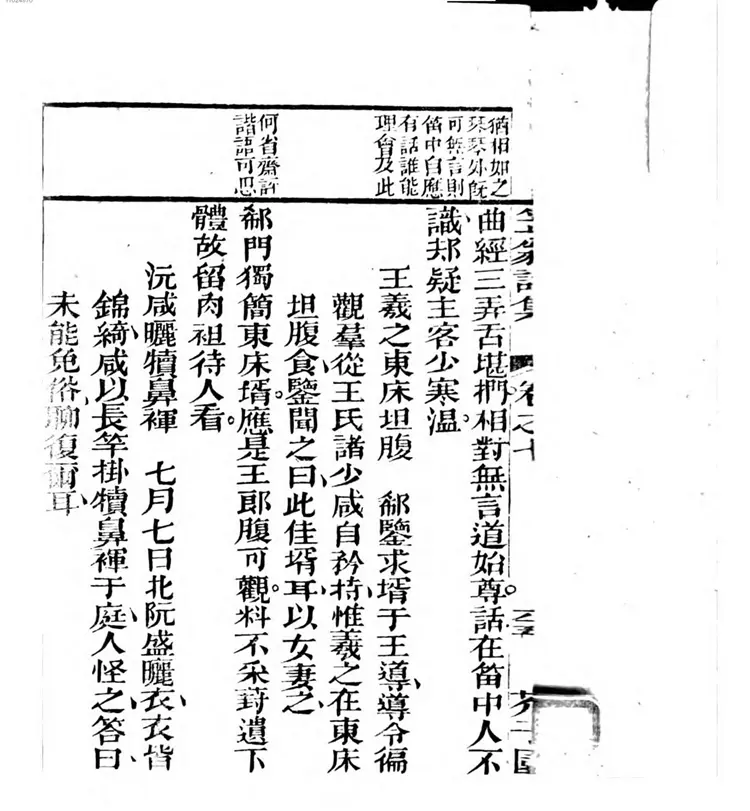 猶相如之
琴琴外旣
可無言則
笛中自應
有話誰能
理會及此
何省齋評
諧語可思
曲經三弄舌堪捫相對無言道始尊話在笛中人不
識却疑主客少寒温
王羲之東床坦腹 郗鑒求壻于王導導令徧
觀羣從王氏諸少咸自矜持惟羲之在東床
坦腹食鑒聞之曰此佳壻耳以女妻之
郗門獨簡東床壻應是王郎腹可觀料不采葑遺下
體故留肉袒待人看
沅咸曬犢鼻褌 七月七日北阮盛曬衣衣皆
錦綺咸以長竿掛犢鼻褌于庭人怪之答曰
未能免俗聊復爾耳
卷之七